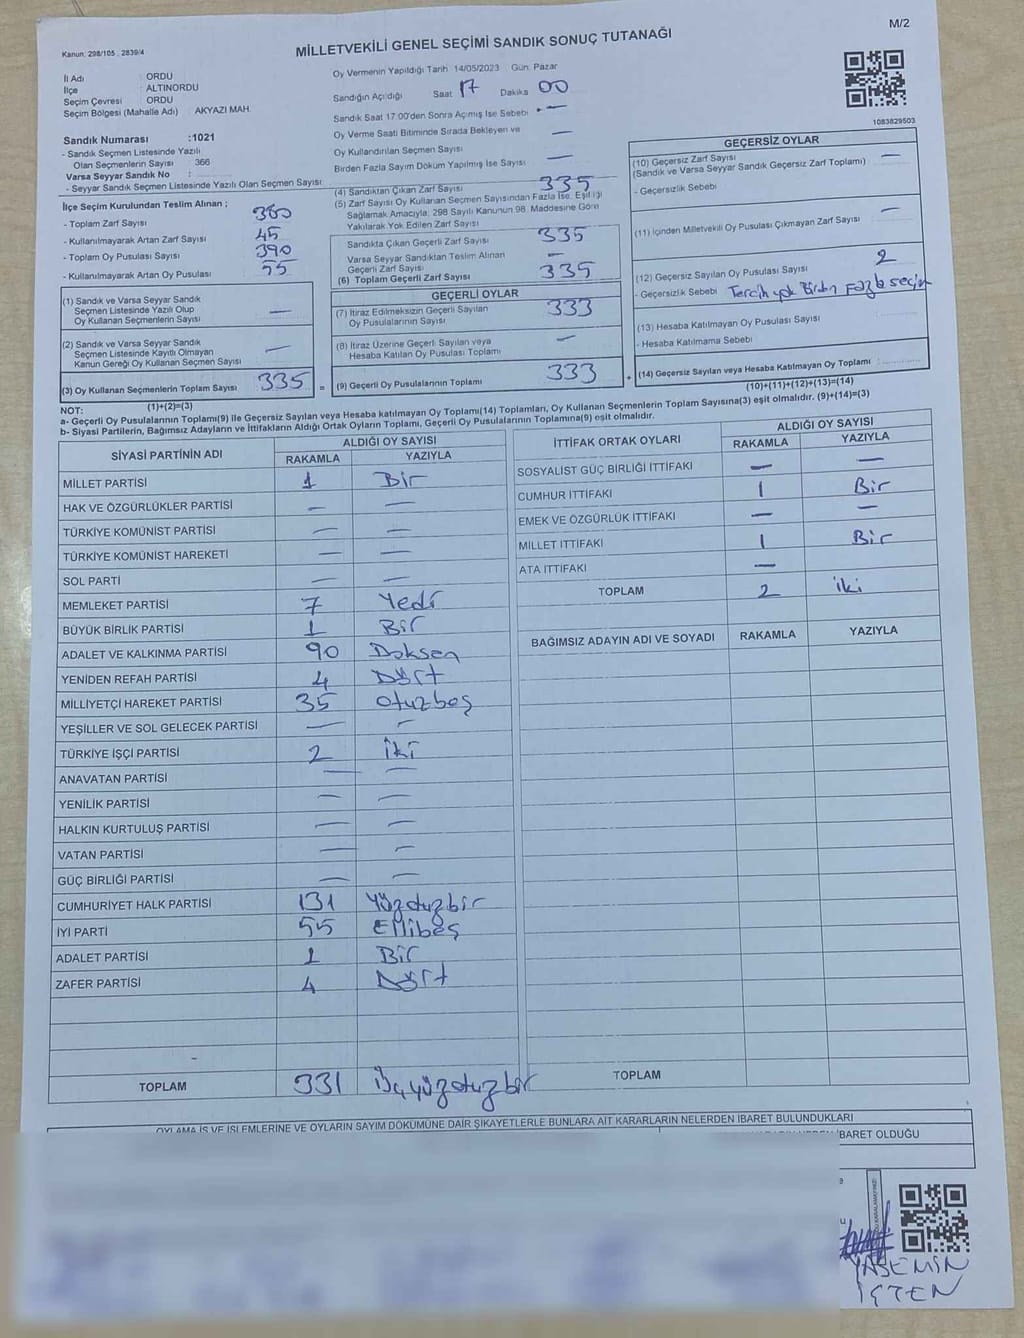 M/2
Kanun: 298/105 , 2839/4
MİLLETVEKİLİ GENEL SEÇİMİ SANDIK SONUÇ TUTANAĞI
İl Adı : ORDU
İlçe : ALTINORDU
Seçim Çevresi : ORDU
Seçim Bölgesi (Mahalle Adı) : AKYAZI MAH.
Oy Vermenin Yapıldığı Tarih 14/05/2023 Gün: Pazar
Sandığın Açıldığı Saat 17 Dakika 00
Sandık Saat 17:00'den Sonra Açımış İse Sebebi : —
Oy Verme Saati Bitiminde Sırada Bekleyen ve
Oy Kullandırılan Seçmen Sayısı —
Birden Fazla Sayım Döküm Yapılmış İse Sayısı —
1083829503
Sandık Numarası :1021
- Sandık Seçmen Listesinde Yazılı
Olan Seçmenlerin Sayısı : 366
Varsa Seyyar Sandık No :
- Seyyar Sandık Seçmen Listesinde Yazılı Olan Seçmen Sayısı:
İlçe Seçim Kurulundan Teslim Alınan ;
- Toplam Zarf Sayısı 380
- Kullanılmayarak Artan Zarf Sayısı 45
- Toplam Oy Pusulası Sayısı 390
- Kullanılmayarak Artan Oy Pusulası 55
(1) Sandık ve Varsa Seyyar Sandık
Seçmen Listesinde Yazılı Olup
Oy Kullanan Seçmenlerin Sayısı —
(2) Sandık ve Varsa Seyyar Sandık
Seçmen Listesinde Kayıtlı Olmayan
Kanun Gereği Oy Kullanan Seçmen Sayısı —
(3) Oy Kullanan Seçmenlerin Toplam Sayısı 335 =
(1)+(2)=(3)
(4) Sandıktan Çıkan Zarf Sayısı 335
(5) Zarf Sayısı Oy Kullanan Seçmen Sayısından Fazla İse, Eşitliği
Sağlamak Amacıyla, 298 Sayılı Kanunun 98. Maddesine Göre
Yakılarak Yok Edilen Zarf Sayısı
Sandıkta Çıkan Geçerli Zarf Sayısı 335
Varsa Seyyar Sandıktan Teslim Alınan
Geçerli Zarf Sayısı —
(6) Toplam Geçerli Zarf Sayısı 335
GEÇERLİ OYLAR
(7) İtiraz Edilmeksizin Geçerli Sayılan
Oy Pusulalarının Sayısı 333
(8) İtiraz Üzerine Geçerli Sayılan veya
Hesaba Katılan Oy Pusulası Toplamı —
(9) Geçerli Oy Pusulalarının Toplamı 333 +
GEÇERSİZ OYLAR
(10) Geçersiz Zarf Sayısı —
(Sandık ve Varsa Seyyar Sandık Geçersiz Zarf Toplamı)
- Geçersizlik Sebebi
(11) İçinden Milletvekili Oy Pusulası Çıkmayan Zarf Sayısı —
(12) Geçersiz Sayılan Oy Pusulası Sayısı 2
- Geçersizlik Sebebi Tercih yok Birden Fazla seçim
(13) Hesaba Katılmayan Oy Pusulası Sayısı
- Hesaba Katılmama Sebebi
(14) Geçersiz Sayılan veya Hesaba Katılmayan Oy Toplamı
(10)+(11)+(12)+(13)=(14)
NOT:
a- Geçerli Oy Pusulalarının Toplamı(9) ile Geçersiz Sayılan veya Hesaba katılmayan Oy Toplamı(14) Toplamları, Oy Kullanan Seçmenlerin Toplam Sayısına(3) eşit olmalıdır. (9)+(14)=(3)
b- Siyasi Partilerin, Bağımsız Adayların ve İttifakların Aldığı Ortak Oyların Toplamı, Geçerli Oy Pusulalarının Toplamına(9) eşit olmalıdır.
SİYASİ PARTİNİN ADI ALDIĞI OY SAYISI
RAKAMLA YAZIYLA
MİLLET PARTİSİ 1 Bir
HAK VE ÖZGÜRLÜKLER PARTİSİ — —
TÜRKİYE KOMÜNİST PARTİSİ — —
TÜRKİYE KOMÜNİST HAREKETİ — —
SOL PARTİ — —
MEMLEKET PARTİSİ 7 Yedi
BÜYÜK BİRLİK PARTİSİ 1 Bir
ADALET VE KALKINMA PARTİSİ 90 Doksan
YENİDEN REFAH PARTİSİ 4 Dört
MİLLİYETÇİ HAREKET PARTİSİ 35 otuzbeş
YEŞİLLER VE SOL GELECEK PARTİSİ — —
TÜRKİYE İŞÇİ PARTİSİ 2 İki
ANAVATAN PARTİSİ — —
YENİLİK PARTİSİ — —
HALKIN KURTULUŞ PARTİSİ — —
VATAN PARTİSİ — —
GÜÇ BİRLİĞİ PARTİSİ — —
CUMHURİYET HALK PARTİSİ 131 Yüzotuzbir
İYİ PARTİ 55 Ellibeş
ADALET PARTİSİ 1 Bir
ZAFER PARTİSİ 4 Dört
TOPLAM 331 Üçyüzotuzbir
İTTİFAK ORTAK OYLARI ALDIĞI OY SAYISI
RAKAMLA YAZIYLA
SOSYALİST GÜÇ BİRLİĞİ İTTİFAKI — —
CUMHUR İTTİFAKI 1 Bir
EMEK VE ÖZGÜRLÜK İTTİFAKI — —
MİLLET İTTİFAKI 1 Bir
ATA İTTİFAKI —
TOPLAM 2 iki
BAĞIMSIZ ADAYIN ADI VE SOYADI RAKAMLA YAZIYLA
TOPLAM
OYLAMA İŞ VE İŞLEMLERİNE VE OYLARIN SAYIM DÖKÜMÜNE DAİR ŞİKAYETLERLE BUNLARA AİT KARARLARIN NELERDEN İBARET BULUNDUKLARI
İBARET OLDUĞU
YASEMİN
İÇTEN